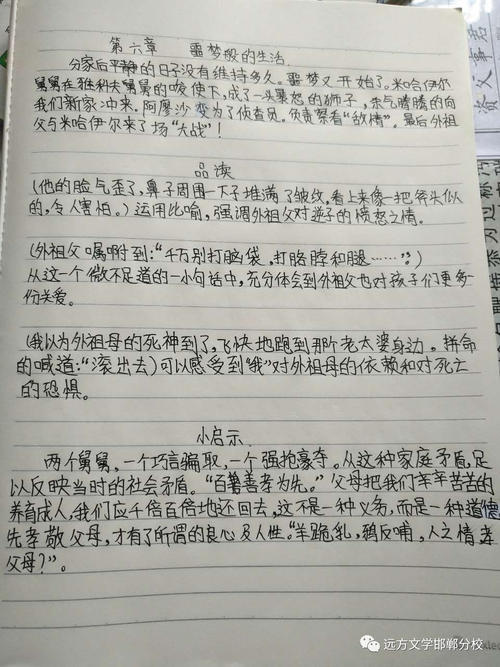 第六章 噩梦般的生活.
分家后平静的日子没有维持多久。噩梦又开始了。米哈伊尔
舅舅在雅科夫舅舅的唆使下,成了一头暴怒的狮子,杀气腾腾的向
我们新家冲来。阿廖沙变为了侦查员。负责察看“敌情”。最后外祖
父与米哈伊尔来了场“大战”!
品读
(他的脸气歪了,鼻子周围一下子堆满了皱纹,看上来像一把斧头似
的,令人害怕。)运用比喻,强调外祖父对逆子的愤怒之情。
(外祖父嘱咐到:“千万别打脑袋,打胳脖和腿……”。)
从这一个微不足道的一小句话中,充分体会到外祖父也对孩子们更多一
份关爱。
(我以为外祖母的死神到了,飞快地跑到那个老太婆身边。拼命
的喊道:“滚出去)可以感受到“我”对外祖母的依赖和对死亡
的恐惧。
小启示.
两个舅舅,一个巧言骗取,一个强抢豪夺。从这种家庭矛盾,足
以反映当时的社会矛盾。“百善孝为先。”父母把我们辛辛苦苦的
养育成人,我们应千倍百倍地还回去,这不是一种义务,而是一种道德
先孝敬父母,才有了所谓的良心及人性。“羊跪乳,鸦反哺,人之情孝
父母?”。
远方文学邯郸分校